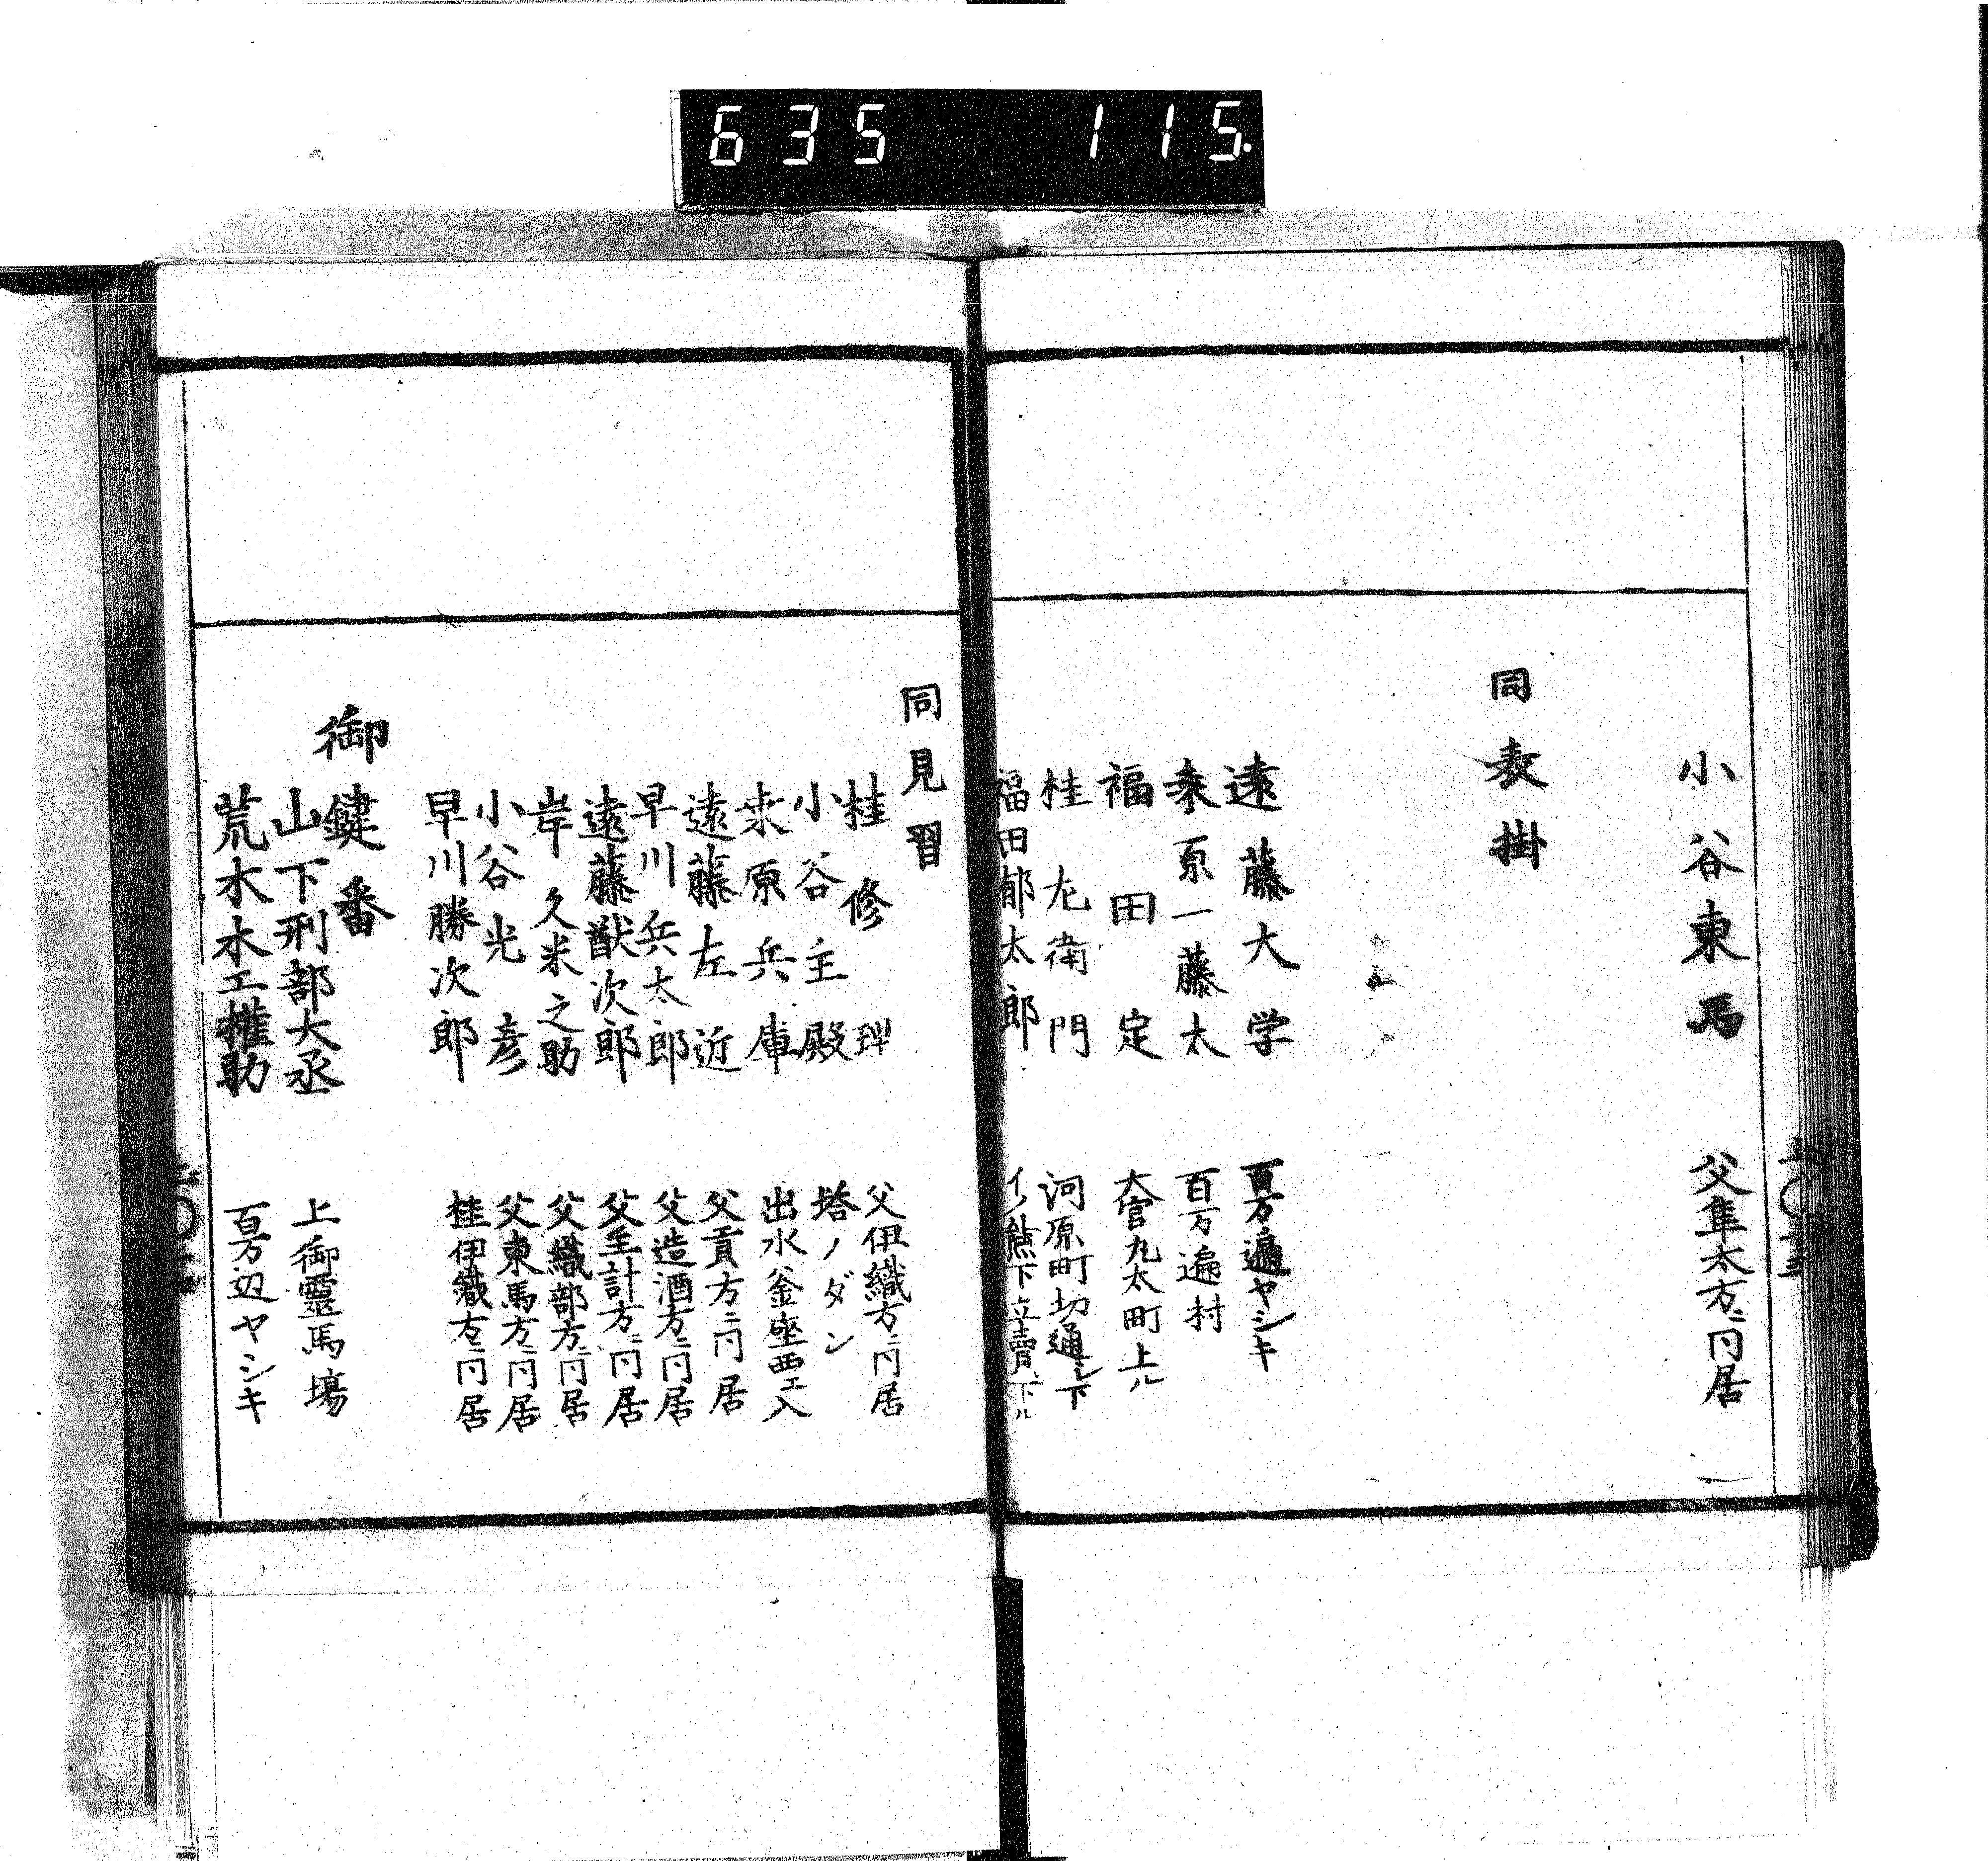 635 115.
小谷東馬 父隼太方ニ同居
同表掛
遠藤大学 百万遍ヤシキ
桒原一藤太 百万遍村
福田定 大宮丸太町上ル
桂左衛門 河原町切通シ下
福田郁太郎 イノ熊下立賣下ル
同見習
桂修理 父伊織方ニ同居
小谷主殿 塔ノダン
桒原兵庫 出水釜座西エ入
遠藤左近 父貢方ニ同居
早川兵太郎 父造酒方ニ同居
遠藤猷次郎 父主計方ニ同居
岸久米之助 父織部方ニ同居
小谷光彦 父東馬方ニ同居
早川勝次郎 桂伊織方ニ同居
御鍵番
山下刑部大丞 上御霊馬場
荒木木工權助 百万辺ヤシキ